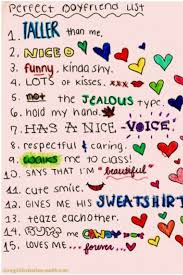 perfect boyfriend list
1. TALLER than me.
2. NICE
3. funny, kinda shy.
4. LOTS of kisses. xxx
5. not the JEALOUS type.
6. hold my hand.
7. HAS A NICE -VOICE-
8. respectful & caring.
9. walks me to class!
10. SAYS THAT I'M "beautiful"
11. cute smile.
12. GIVES ME HIS SWEATSHIRT
13. teaze eachother.
14. BUYS me CANDY
15. LOVES ME ... forever...